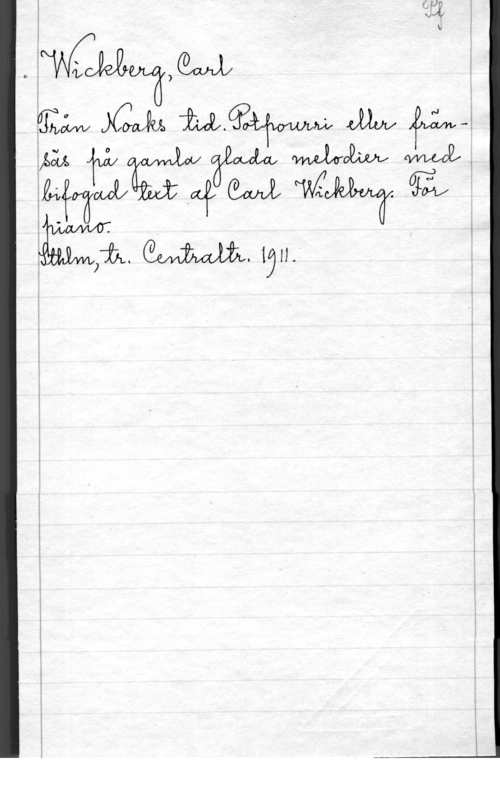 Pf
Wickberg, Carl
Från Noaks tid. Potpourri eller frän-
säs på gamla glada melodier med
bifogad text af Carl Wickberg. För
piano.
Sthlm, tr. Centraltr. 1911.